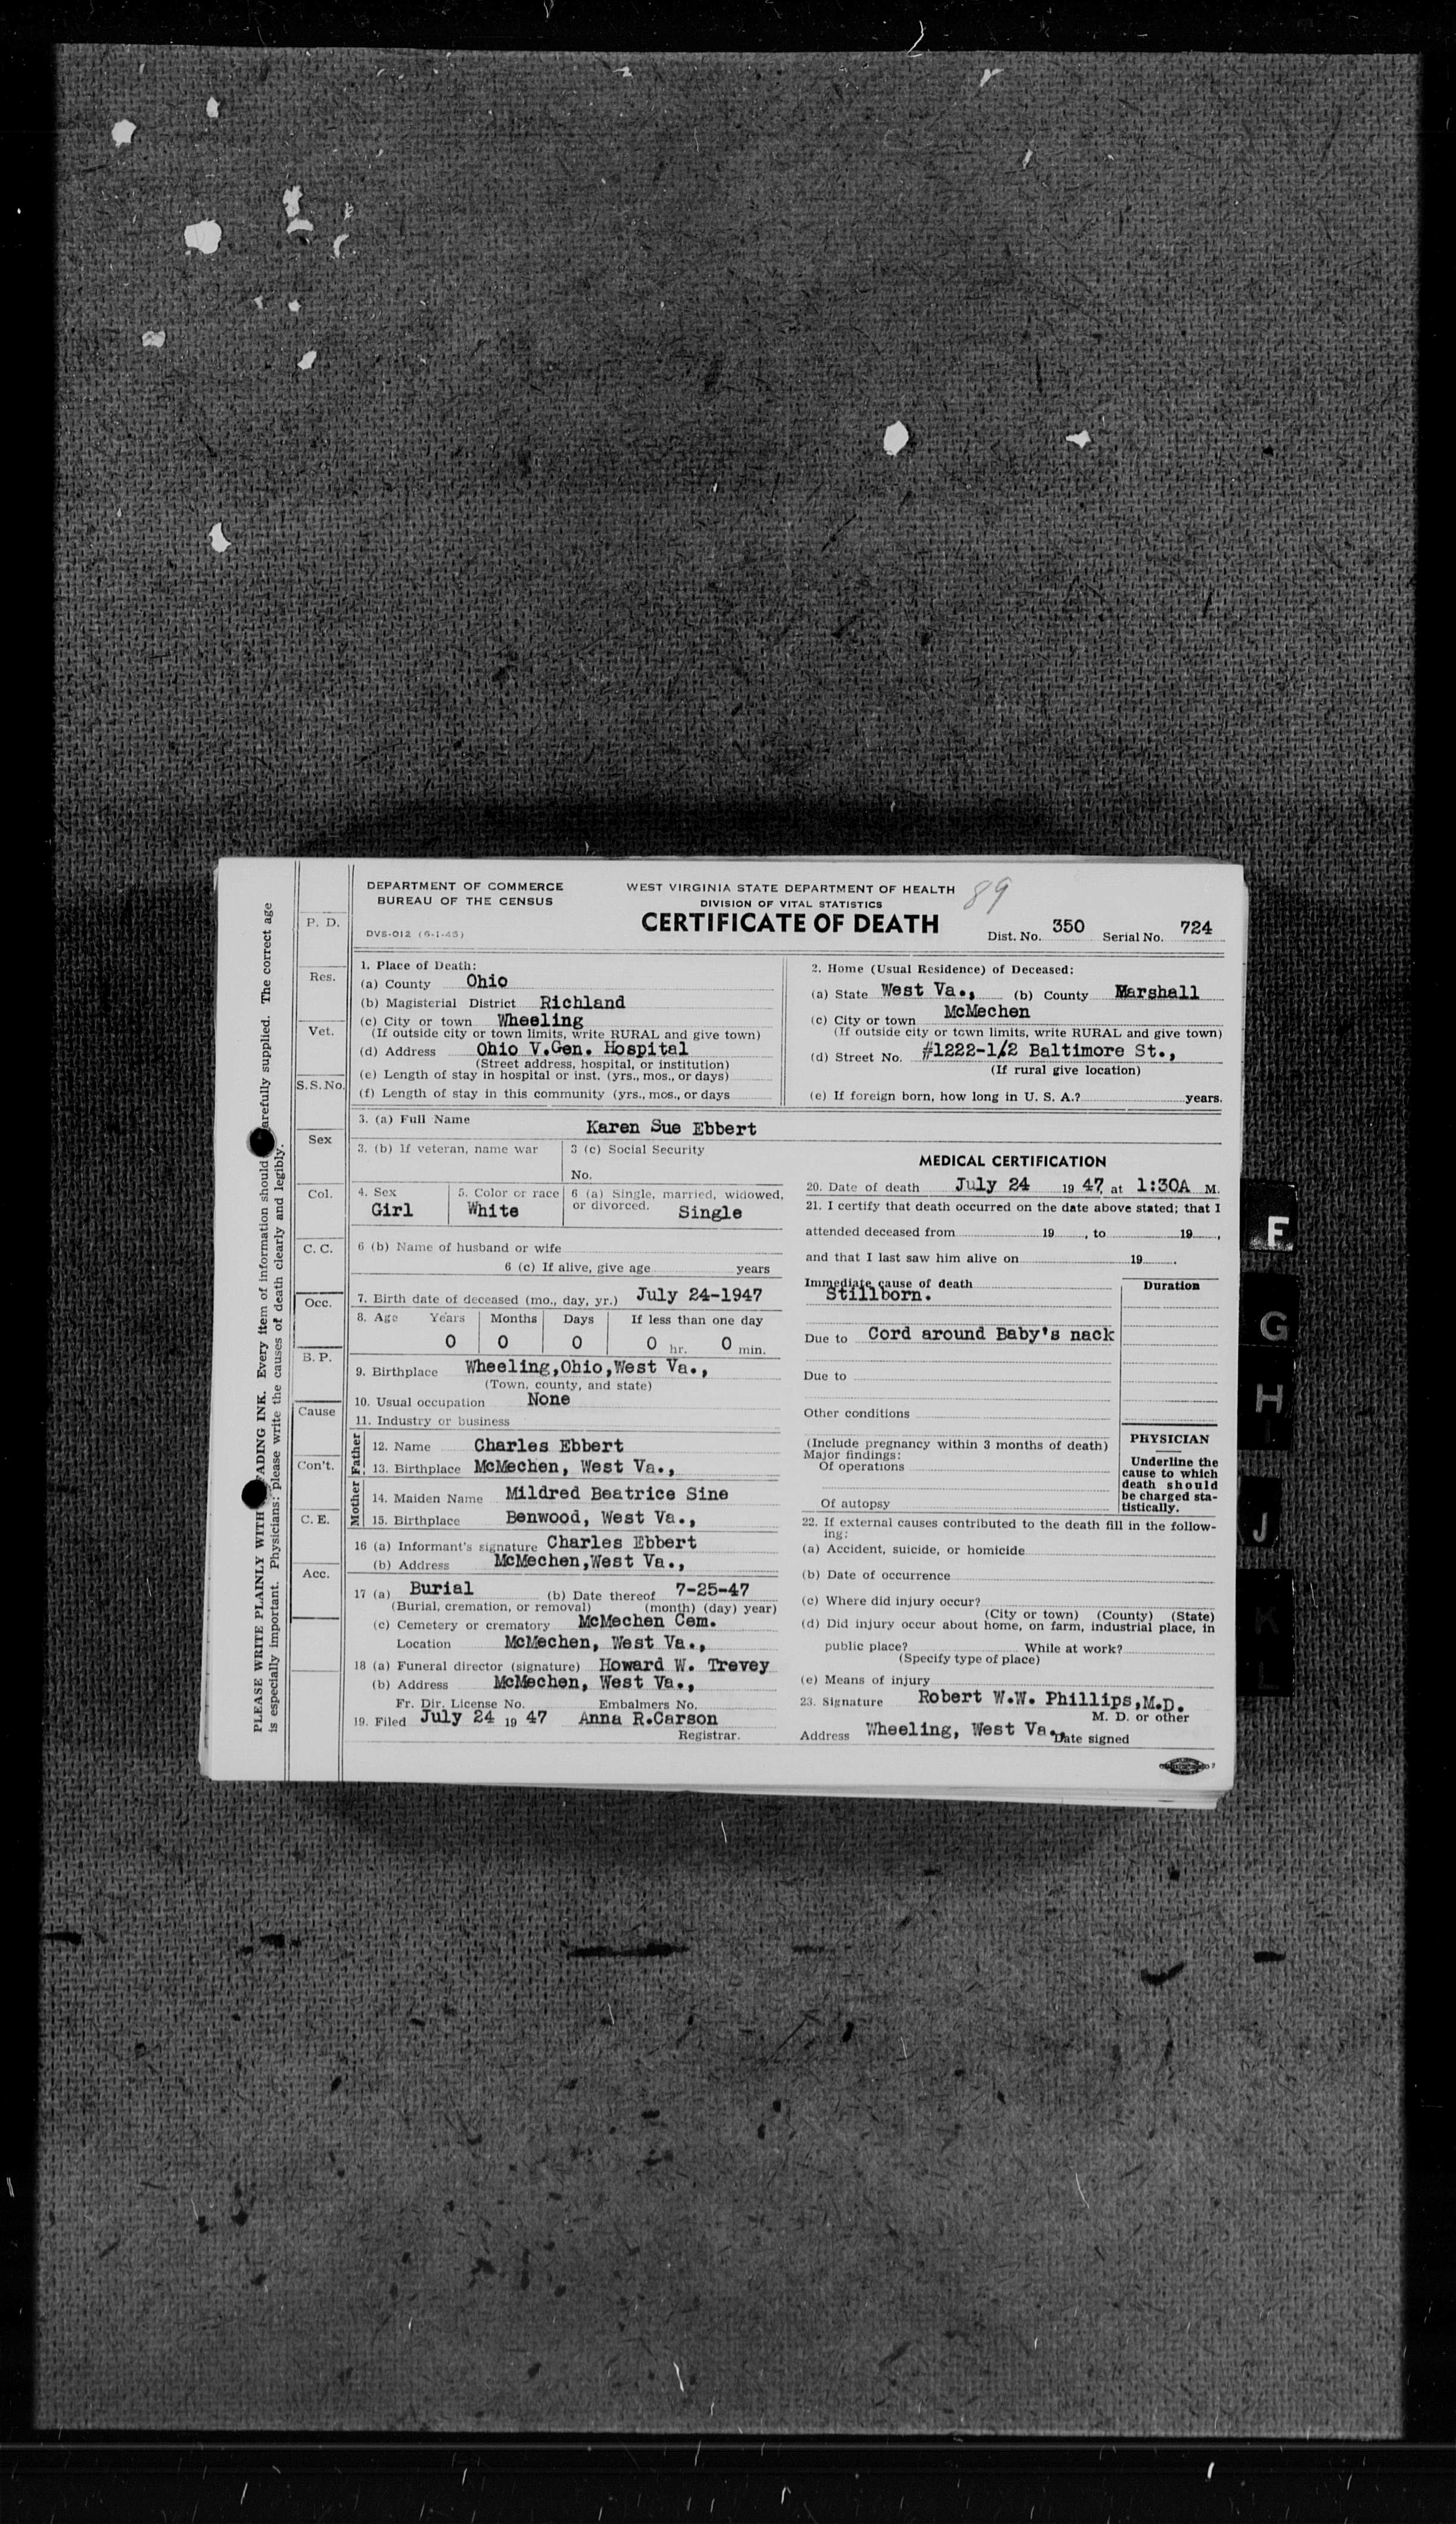 PLEASE WRITE PLAINLY WITH ADING INK. Every item of information should arefully supplied. The correct age
is especially important. Physicians: please write the causes of death clearly and legibly.
P. D.
Res.
Vet.
S.S.No.
Sex
Col.
C. C.
Occ.
B. P.
Cause
Con't.
C. E.
Acc.
DEPARTMENT OF COMMERCE
BUREAU OF THE CENSUS
DVS-012 (6-1-45)
WEST VIRGINIA STATE DEPARTMENT OF HEALTH
DIVISION OF VITAL STATISTICS
CERTIFICATE OF DEATH
89
Dist. No. 350 Serial No. 724
1. Place of Death:
(a) County Ohio
(b) Magisterial District Richland
(c) City or town Wheeling
(If outside city or town limits, write RURAL and give town)
(d) Address Ohio V.Gen. Hospital
(Street address, hospital, or institution)
(e) Length of stay in hospital or inst. (yrs., mos., or days)
(f) Length of stay in this community (yrs., mos., or days
2. Home (Usual Residence) of Deceased:
(a) State West Va., (b) County Marshall
(c) City or town McMechen
(If outside city or town limits, write RURAL and give town)
(d) Street No. #1222-1/2 Baltimore St.,
(If rural give location)
(e) If foreign born, how long in U. S. A.? years.
3. (a) Full Name Karen Sue Ebbert
3. (b) If veteran, name war
3 (c) Social Security
No.
4. Sex Girl
5. Color or race White
6 (a) Single, married, widowed, or divorced. Single
6 (b) Name of husband or wife
6 (c) If alive, give age years
7. Birth date of deceased (mo., day, yr.) July 24-1947
8. Age Years Months Days If less than one day
0 0 0 0 hr. 0 min.
9. Birthplace Wheeling,Ohio,West Va.,
(Town, county, and state)
10. Usual occupation None
11. Industry or business
Father
12. Name Charles Ebbert
13. Birthplace McMechen, West Va.,
Mother
14. Maiden Name Mildred Beatrice Sine
15. Birthplace Benwood, West Va.,
16 (a) Informant's signature Charles Ebbert
(b) Address McMechen,West Va.,
17 (a) Burial (b) Date thereof 7-25-47
(Burial, cremation, or removal) (month) (day) year)
(c) Cemetery or crematory McMechen Cem.
Location McMechen, West Va.,
18 (a) Funeral director (signature) Howard W. Trevey
(b) Address McMechen, West Va.,
Fr. Dir. License No. Embalmers No.
19. Filed July 24 19 47 Anna R.Carson
Registrar.
MEDICAL CERTIFICATION
20. Date of death July 24 19 47, at 1:30A M.
21. I certify that death occurred on the date above stated; that I
attended deceased from 19 , to 19 ,
and that I last saw him alive on 19 .
Immediate cause of death
Stillborn.
Duration
Due to Cord around Baby's nack
Due to
Other conditions
(Include pregnancy within 3 months of death)
Major findings:
Of operations
Of autopsy
PHYSICIAN
Underline the
cause to which
death should
be charged sta-
tistically.
22. If external causes contributed to the death fill in the follow-
ing:
(a) Accident, suicide, or homicide
(b) Date of occurrence
(c) Where did injury occur?
(City or town) (County) (State)
(d) Did injury occur about home, on farm, industrial place, in
public place? While at work?
(Specify type of place)
(e) Means of injury
23. Signature Robert W.W. Phillips,M.D.
M. D. or other
Address Wheeling, West Va., Date signed
F
G
H
I
J
K
L